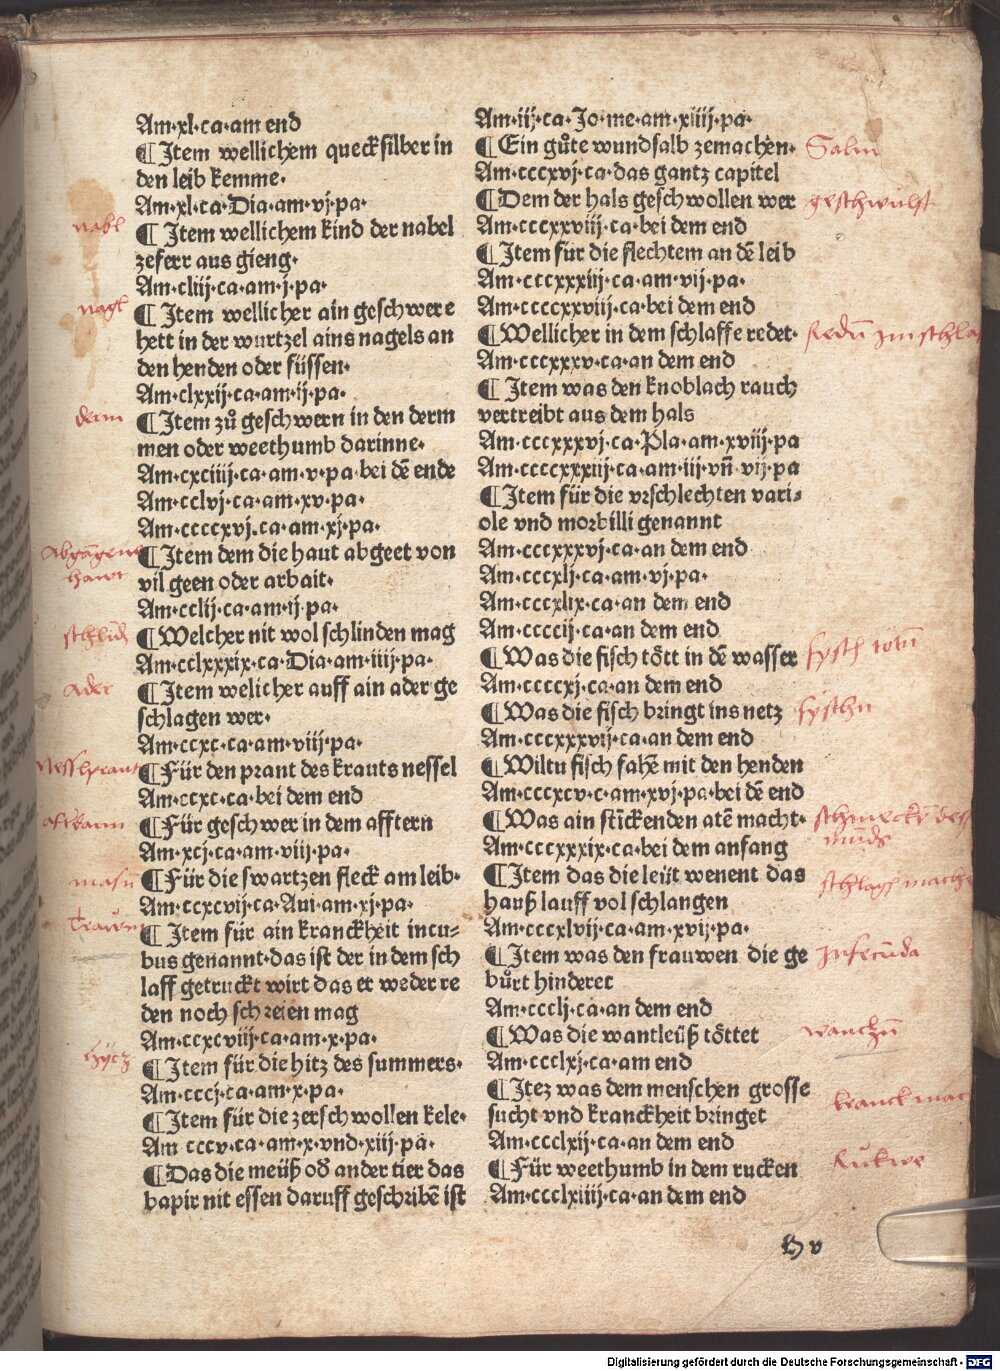 Am·xl·ca·am end
¶ Item wellichem queckſilber in
den leib kemme·
Am·xl·ca·Dia·am·vj·pa·
nabl
¶ Item wellichem kind der nabel
zeferr aus gieng·
Am·cliij·ca·am·j·pa·
nagl
¶ Item wellicher ain geſchwere
hett in der wurtzel ains nagels an
den henden oder füſſen·
Am·clxxij·ca·am·ij·pa·
derm
¶ Item zů geſchwern in den derm
men oder weethumb darinne·
Am·cxciiij·ca·am·v·pa·bei dē ende
Am·cclvj·ca·am·xv·pa·
Am·ccccxvj.ca·am·xj·pa·
abgāgene
hawt
¶ Item dem die haut abgeet von
vil geen oder arbait·
Am·cclij·ca·am·ij·pa·
ſchlindē
¶ Welcher nit wol ſchlinden mag
Am·cclxxxix·ca·Dia·am·iiij·pa·
ader
¶ Item welicher auff ain ader ge
ſchlagen wer·
Am·ccxc·ca·am·viij·pa·
neſſlprant
¶ Für den prant des krauts neſſel
Am·ccxc·ca·bei dem end
¶ Für geſchwer in dem afftern
Am·xcj·ca·am·viij·pa·
maſn̄
¶ Für die ſwartzen fleck am leib·
Am·ccxcvij·ca·Aui·am·xj·pa·
¶ Item für ain kranckheit incu⸗
bus genannt·das iſt der in dem ſch
laff getruckt wirt das er weder re
den noch ſchreien mag
Am·ccxcviij·ca·am·x·pa·
hÿcz
¶ Item für die hitz des ſummers·
Am·cccj·ca·am·x·pa·
¶ Item für die zerſchwollen kele·
Am cccv·ca·am·x·vnd·xiij·pa·
¶ Das die meüß od̄ ander tier das
bapir nit eſſen daruff geſchribē iſt
Am·iij·ca·Jo·me·am·xiiij·pa·
¶ Ein gůte wundſalb zemachen·
Salm
Am·cccxvj·ca·das gantz capitel
¶ Dem der hals geſchwollen wer
geſchwulſt
Am·cccxxviij·ca·bei dem end
¶ Item für die flechtem an dē leib
Am·cccxxxiij·ca·am·vij·pa·
Am·cccxxviij·ca·bei dem end
¶ Wellicher in dem ſchlaffe redet·
Redn̄ jm ſchla
Am·cccxxxv·ca·an dem end
¶ Item was den knoblach rauch
vertreibt aus dem hals
Am·cccxxxvj·ca·Pla·am·xviij·pa
Am·ccccxxxiij·ca·am·iij·vn̄·vij·pa
¶ Item für die vrſchlechten vari⸗
ole vnd morbilli genannt
Am·cccxxxvj·ca·an dem end
Am·cccxlj·ca·am·vj·pa·
Am·cccxlix·ca·an dem end
Am·ccccij·ca·an dem end
¶ Was die fiſch tött in dē waſſer
fyſch totn̄
Am·ccccxj·ca·an dem end
¶ Was die fiſch bringt ins netz
fyſchn
Am·cccxxxvij·ca·an dem end
¶ Wiltu fiſch fahē mit den henden
Am·cccxcv·c·am·xvj·pa·bei dē end
¶ Was ain ſtīckenden atē macht·
ſchmeckn̄ des
munds
Am·cccxxxix·ca·bei dem anfang
¶ Item das die leüt wenent das
ſchlagn̄ mache
hauß lauff vol ſchlangen
Am·cccxlvij·ca·am·xvij·pa·
¶ Item was den frauwen die ge
Infecūda
bůrt hinderet
Am·ccclj·ca·an dem end
¶ Was die wantleüß töttet
wanczn̄
Am·ccclxj·ca·am end
¶ Itez was dem menſchen groſſe
kranck mac
ſucht vnd kranckheit bringet
Am·ccclxij·ca·an dem end
¶ Für weethumb in dem rucken
Rukwe
Am·ccclxiiij·ca·an dem end
H v
Digitalisierung gefördert durch die Deutsche Forschungsgemeinschaft - DFG